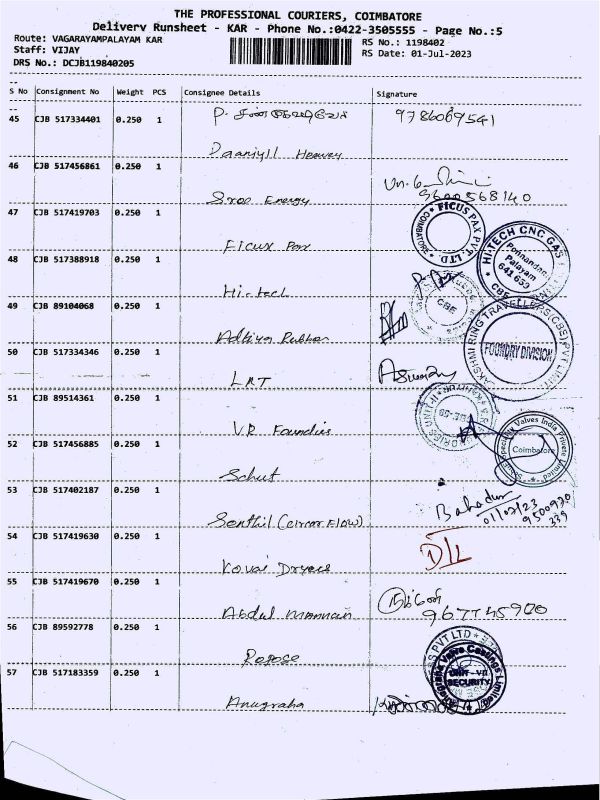 THE PROFESSIONAL COURIERS, COIMBATORE
Delivery Runsheet - KAR - Phone No.:0422-3505555 - Page No.:5
Route: VAGARAYAMPALAYAM KAR
RS No.: 1198402
Staff: VIJAY
RS Date: 01-Jul-2023
DRS No.: DCJB119840205
S No Consignment No Weight PCS Consignee Details Signature
45 CJB 517334401 0.250 1 P. 9786069541
Daaniyll
46 CJB 517456861 0.250 1
Sree Energy 9600568140
47 CJB 517419703 0.250 1
FICUS PAX PVT. LTD.
Ficux Pax
HITECH CNC GAS
Ponnandam Palayam
641 659
CBE
48 CJB 517388918 0.250 1
Hi-tech
CBE
49 CJB 89104068 0.250 1
Aditya Rubber
LAKSHMI RING TRAVELLERS (CBE) PVT LIMITED
FOUNDRY DIVISION
50 CJB 517334346 0.250 1
LRT
51 CJB 89514361 0.250 1
V.R Foundries
52 CJB 517456885 0.250 1
Valves India Private Limited
Coimbatore
Schut
53 CJB 517402187 0.250 1
Bahadur
01/07/23
9500930
339
Senthil (Circor Flow)
54 CJB 517419630 0.250 1
DIL
Kovai Dryers
55 CJB 517419670 0.250 1
Abdul Mannan 9677745900
56 CJB 89592778 0.250 1
Ropose
57 CJB 517183359 0.250 1
PVT LTD
Anugraha Valve Castings Limited
UNIT - VII
SECURITY
Anugraha